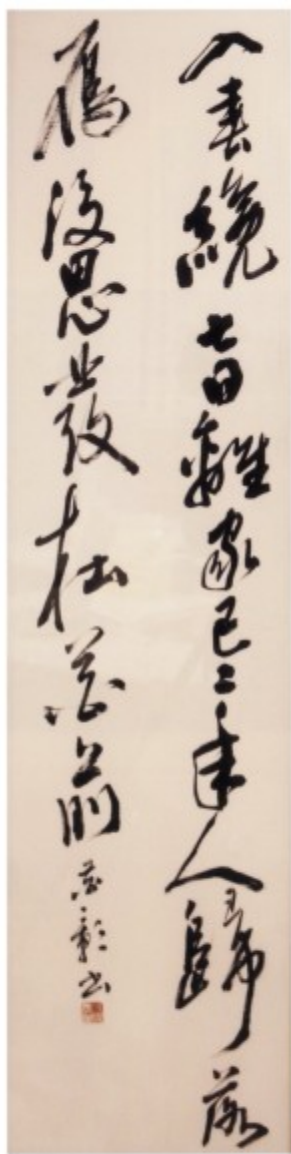 入春纔七日離家已二年人歸落
鴈後思發在花前